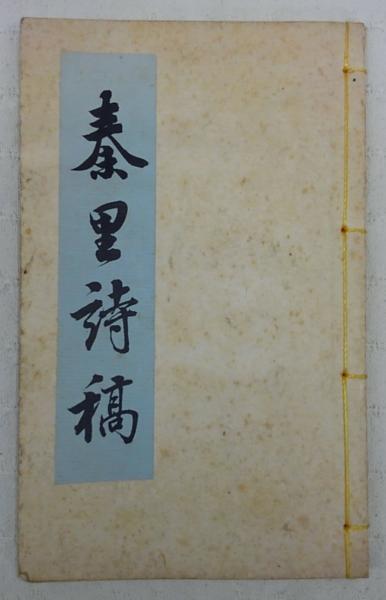 秦里詩稿